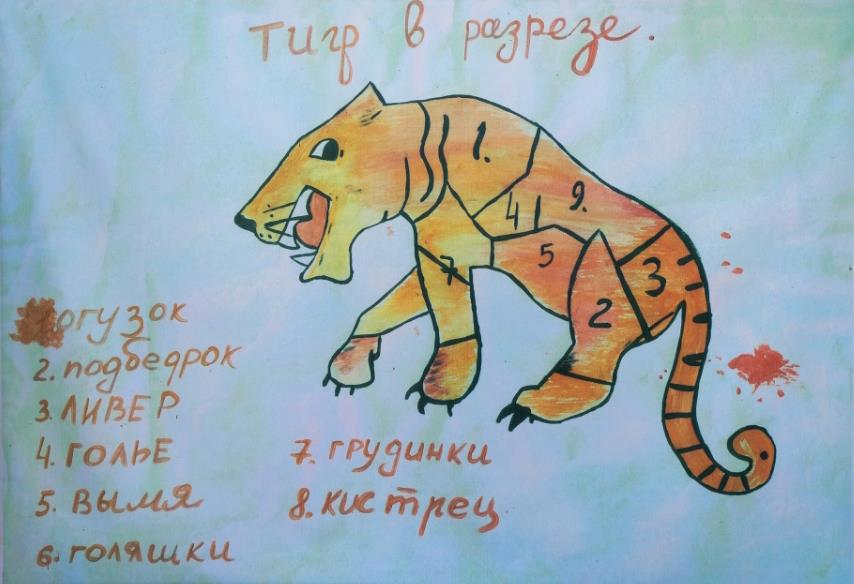 Тигр в разрезе.
1.
4
9.
5
7
3
2
огузок
2. подбедрок
3. ЛИВЕР
4. ГОЛЬЕ
5. ВЫМЯ
6. ГОЛЯШКИ
7. ГРУДИНКИ
8. кистрец